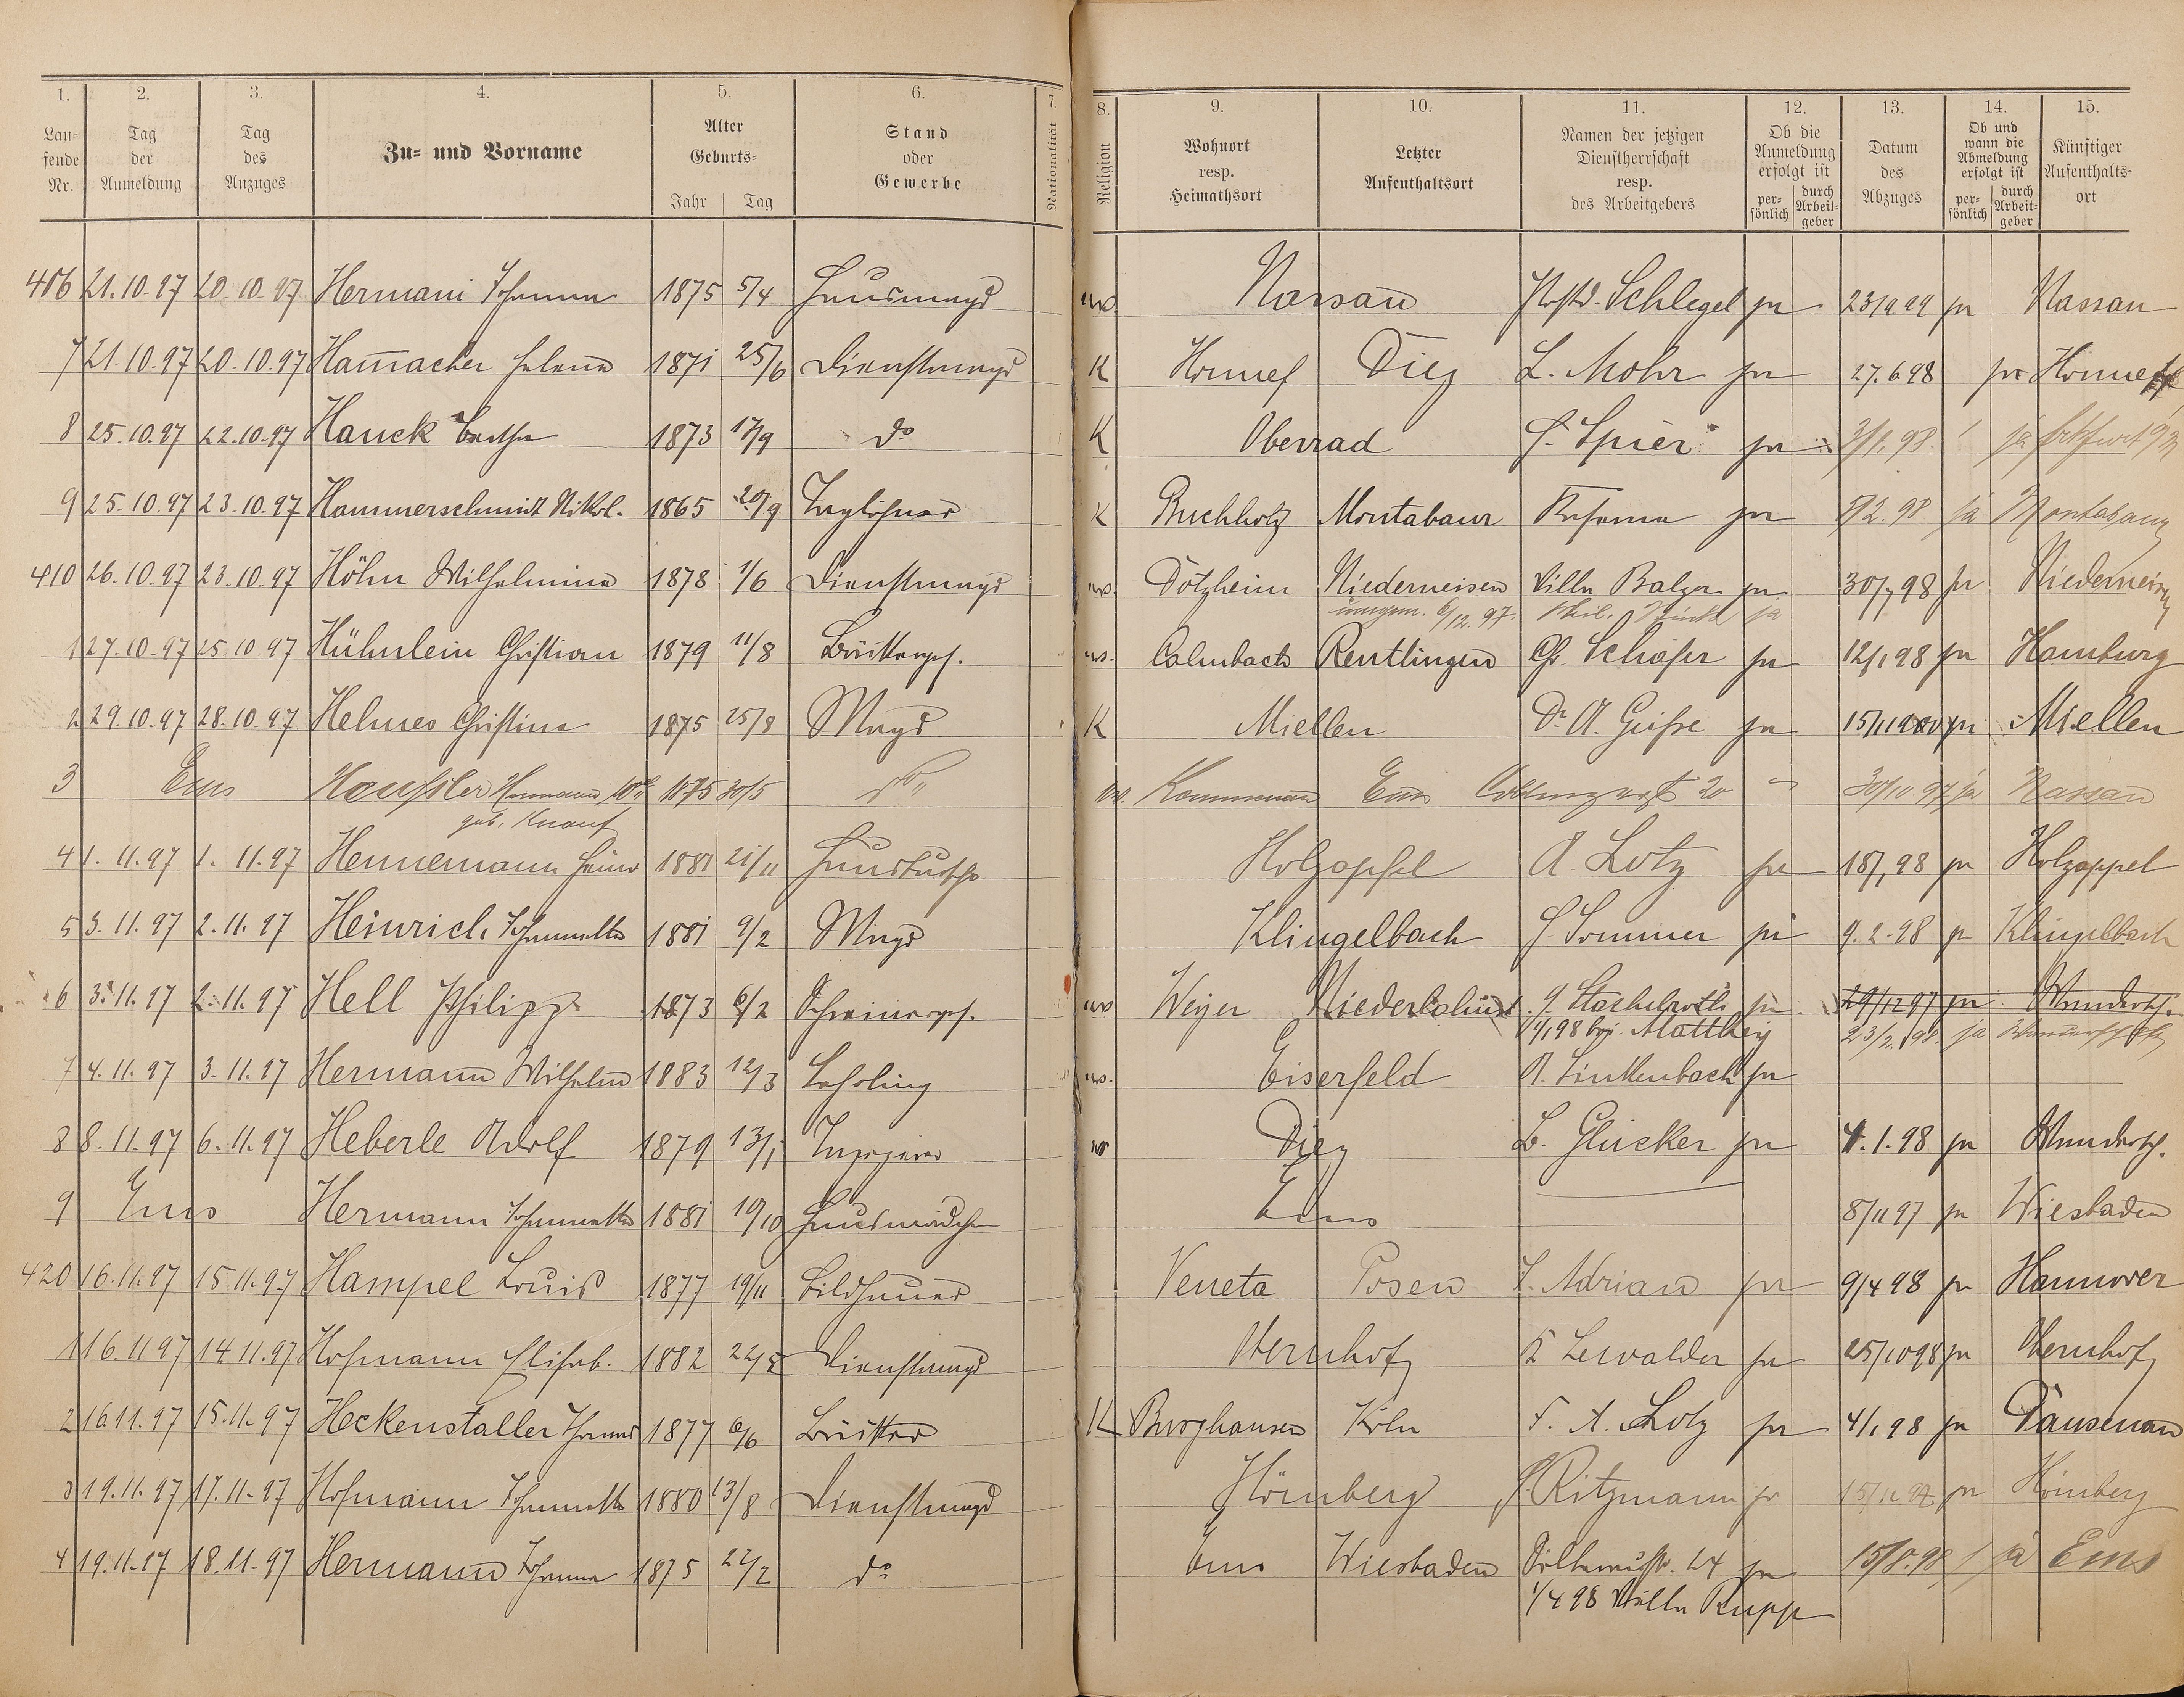 1. 2. 3. 4. 5. 6. 7. 8. 9. 10. 11. 12. 13. 14. 15.
Laufende Nr. Tag der Anmeldung Tag des Anzuges Zu- und Vorname Alter Geburts- Jahr Tag Stand oder Gewerbe Nationalität Religion Wohnort resp. Heimathsort Letzter Aufenthaltsort Namen der jetzigen Dienstherrschaft resp. des Arbeitgebers Ob die Anmeldung erfolgt ist persönlich durch Arbeitgeber Datum des Abzuges Ob und wann die Abmeldung erfolgt ist persönlich durch Arbeitgeber Künftiger Aufenthaltsort
406 21.10.97 20.10.97 Hermani Johanna 1875 5/4 Hausmagd ev. Nassau Schlegel ja Nassau
7 21.10.97 20.10.97 Hamacher Helene 1871 25/6 Dienstmagd K Honnef Diez L. Mohr ja 27.6.98 ja Honnef
8 25.10.97 22.10.97 Hauck Bertha 1873 17/9 do K Oberrad Spier ja 3/1.98 ja
9 25.10.97 23.10.97 Hammerschmidt Nikol. 1865 20/9 Taglöhner K Buchholz Montabaur ja ja Montabaur
410 26.10.97 23.10.97 Höhn Wilhelmine 1878 1/6 Dienstmagd ev. Dotzheim Niederneisen Villa Balzer ja 30/7 98 ja Niederneisen
6/12.97. ja
1 27.10.97 25.10.97 Hühnlein Christian 1879 11/8 ev. Calmbach Reutlingen Chr. Schäfer ja 12/1 98 ja Hamburg
2 29.10.97 28.10.97 Helmes Christine 1875 25/8 Magd K Miellen Dr. A. Geisse ja ja Miellen
3 Ems Haeussler Hermann 1875 30/5 do Ems 20 30/10.97 ja Nassau
geb. Knauf
4 1.11.97 1.11.97 Hennemann Heinr 1881 21/11 Hausbursche Holzapfel A. Lotz ja 18/1 98 ja Holzappel
5 3.11.97 2.11.97 Heinrich Johannette 1881 9/2 Magd Klingelbach Sommer ja 9.2.98 ja Klingelbach
6 3.11.97 2.11.97 Hell Philipp 1873 6/2 Schreinergeh. ev Weyer Niederlahnst. Stachelroth ja 29/12 97 ja Wandersch.
1/1 98 bei Matthey 23/2.98 ja
7 4.11.97 3.11.97 Hermann Wilhelm 1883 12/3 Lehrling ev. Eiserfeld A. Linkenbach ja
8 8.11.97 6.11.97 Heberle Adolf 1879 13/1 Tapezierer ev Diez L. Glücker ja 4.1.98 ja Wandersch.
9 Ems Hermann Johannette 1881 10/10 Hausmädchen Ems 8/11 97 ja Wiesbaden
420 16.11.97 15.11.97 Hampel Louis 1877 19/11 Bildhauer Veneta Posen Adrian ja 9/4 98 ja Hannover
1 16.11 97 14.11.97 Hofmann Elisab. 1882 Dienstmagd Obernhof Lewalder ja 25/10 98 ja Obernhof
2 16.11.97 15.11.97 Heckenstaller 1877 6/6 K Burghausen Köln F. A. Lotz ja 4/1 98 ja Dausenau
3 19.11.97 17.11.97 Hofmann Johannette 1880 13/8 Dienstmagd Hömberg Ritzmann ja ja Hömberg
4 19.11.97 18.11.97 Hermann Johanna 1875 22/2 do Ems Wiesbaden 24 ja ja Ems
1/4 98 Villa Rupp